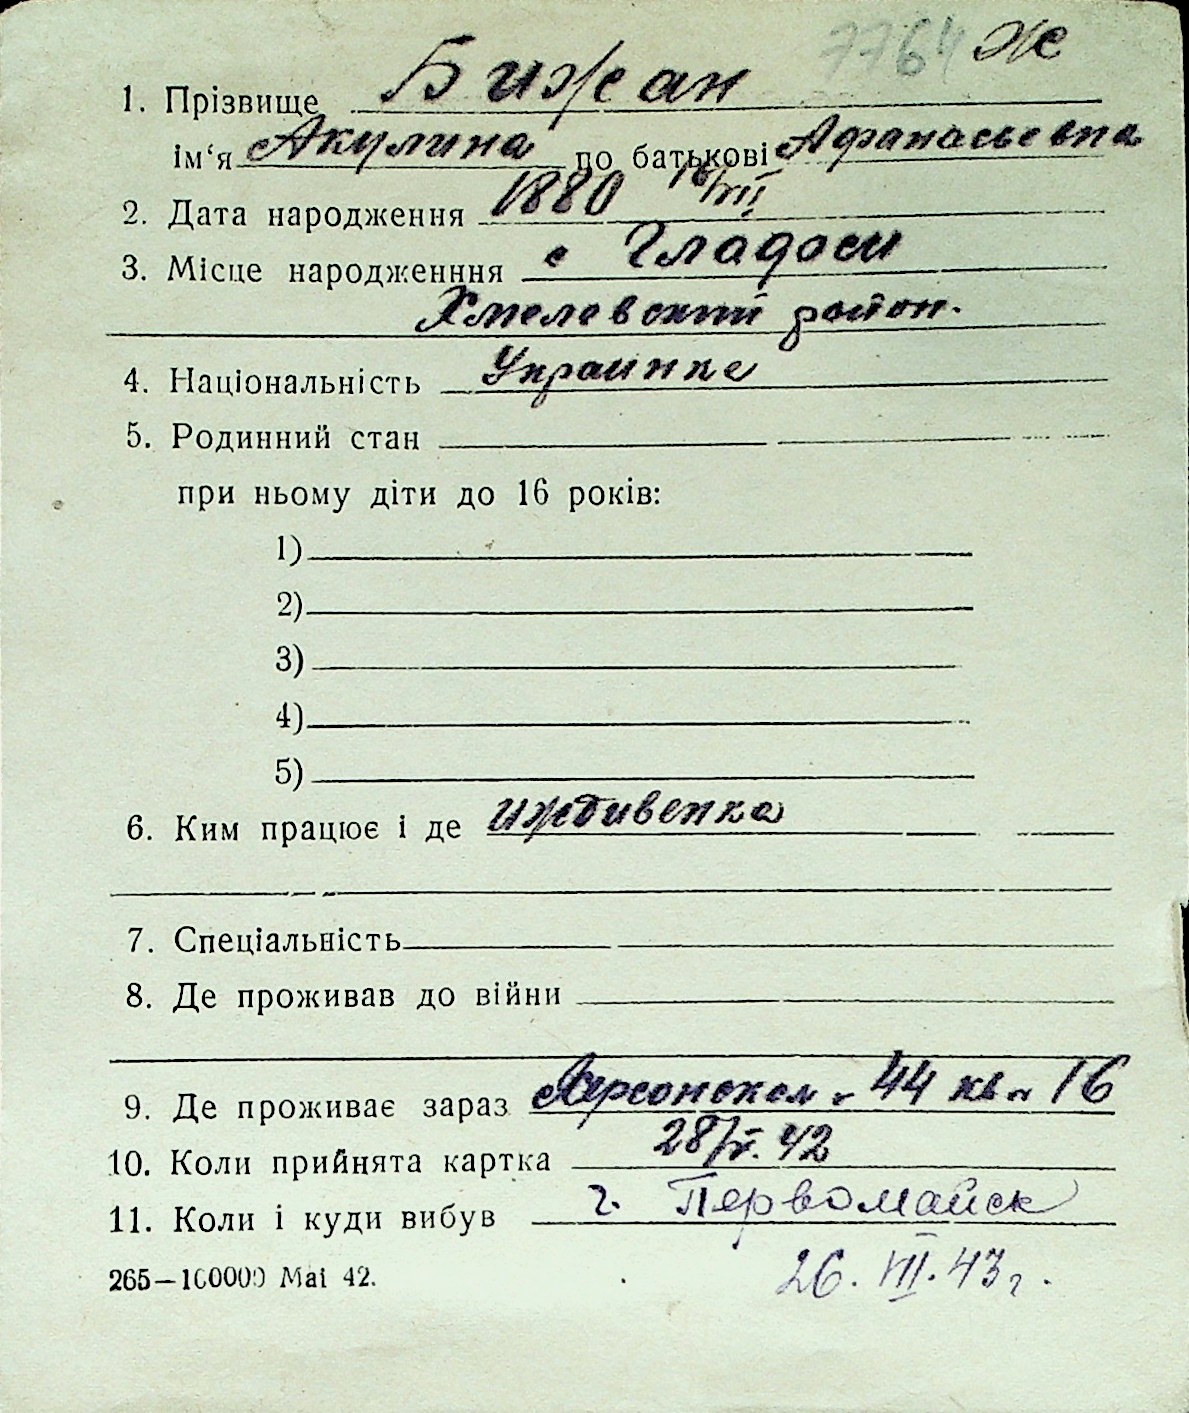 7764 Ж
1. Прізвище Бижан
ім‘я Акулина по батькові Афанасьевна
2. Дата народження 1880 16/VII
3. Місце народженння с Гладоси
Хмелевский район.
4. Національність Украинка
5. Родинний стан
при ньому діти до 16 років:
1)
2)
3)
4)
5)
6. Ким працює і де иждивенка
7. Спеціальність
8. Де проживав до війни
9. Де проживає зараз 44 кв 16
10. Коли прийнята картка 28/V. 42
11. Коли і куди вибув г. Первомайск
265—100000 Mai 42. 26. VIII. 43 г.